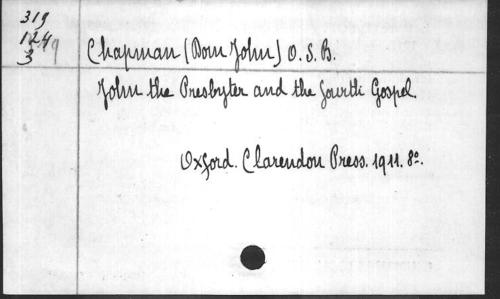 319
124
3
Chapman (Dom John) O.S.B.
John the Presbyter and the fourth Gospel.
Oxford. Clarendon Press. 1911. 8º.